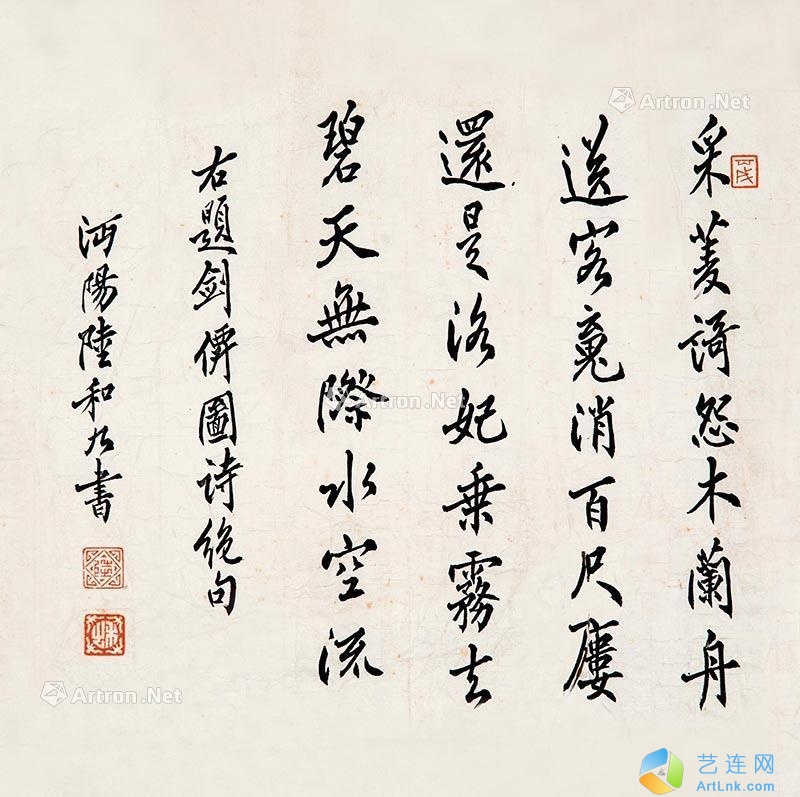 采菱謌怨木蘭舟
送客䰟消百尺廔
還是洛妃乗霧去
碧天無際水空流
右題劍僊圖詩絶句
沔陽陸和九書
Artron.Net
Artron.Net
Artron.Net
Artron.Net
艺连网
ArtLnk.com